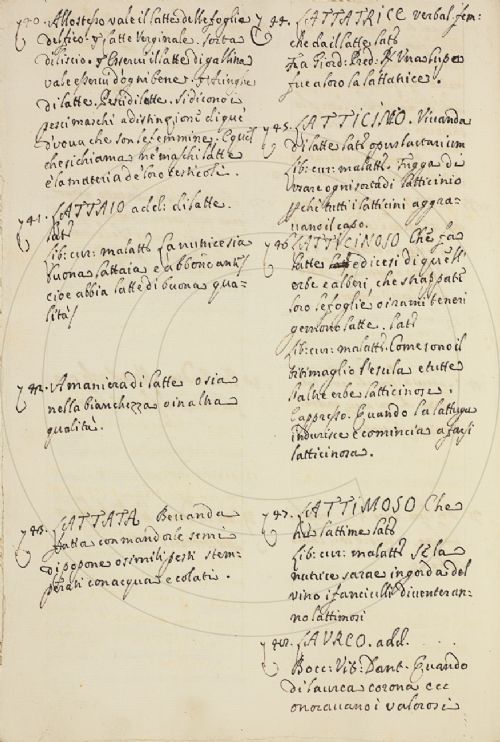 740. Allo stesso vale il latte delle foglie
del fico. ꝑ latte Verginale. sorta
di liscio. ꝑ Esservi il latte di gallina
vale esservi d'ogni bene. ꝑ
di latte. Pesci di latte. si dicono i
pesci maschi a distinzione di que'
d'uova che son le femmine. E quel
che si chiama ne' maschi latte
è la materia de' loro testicoli.
741. LATTAIO add: di latte.
Lat:
Lib: cur: malatt: La nutrice sia
buona lattaia e abbondante
cioè abbia latte di buona qua-
lità
742. A maniera di latte o sia
nella bianchezza o in altra
qualità.
743. LATTATA Bevanda
fatta con mandorle semi
di popone o simili pesti stem-
perati con acqua e colati.
744. LATTATRICE verbal fem:
che dà il latte lat:
Fra Giord: Pred: Una lupa
fue a loro la lattatrice.
745. LATTICINIO. Vivanda
di latte lat: opus lactarium
Lib: cur: malatt: Fugga di
usare ogni sorta di latticinio
ꝑchè tutti i latticini aggra-
vano il capo.
746. LATTICINOSO Che fa
latte e dicesi di quell'
erbe e alberi, che strappate
loro le foglie, o i rami teneri
gemono latte. Lat:
Lib: cur: malatt: Come sono il
titimaglio l'esula e tutte
l'altre erbe latticinose.
E appresso. Quando la lattuga
indurisce e comincia a farsi
latticinosa.
747. LATTIMOSO Che
ha lattime lat:
Lib: cur: malatt: Se la
nutrice sarae ingorda del
vino i fanciulli diventeran-
no lattimosi
748. LAUREO. add.
Bocc: Vit: Dant. Quando
di laurea corona ecc
onoravano i valorosi